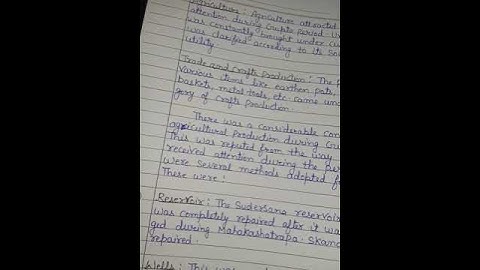 Agriculture : Agriculture attracted
attention during Gupta period. U
was constantly brought under cu
was clasified according to its soi
utility.
Trade and Crafts production : The p
various items like earthen pots,
baskets, metal tools, etc. came und
gory of Crafts production.
There was a considerable con
agricultural production during Gu
This was reputed from the way
received attention during the per
were several methods adopted f
These were :
Reservoir : The Sudarsana reservoir
was completely repaired after it wa
ged during Mahakshatrapa. Skan
repaired.
Wells : This was